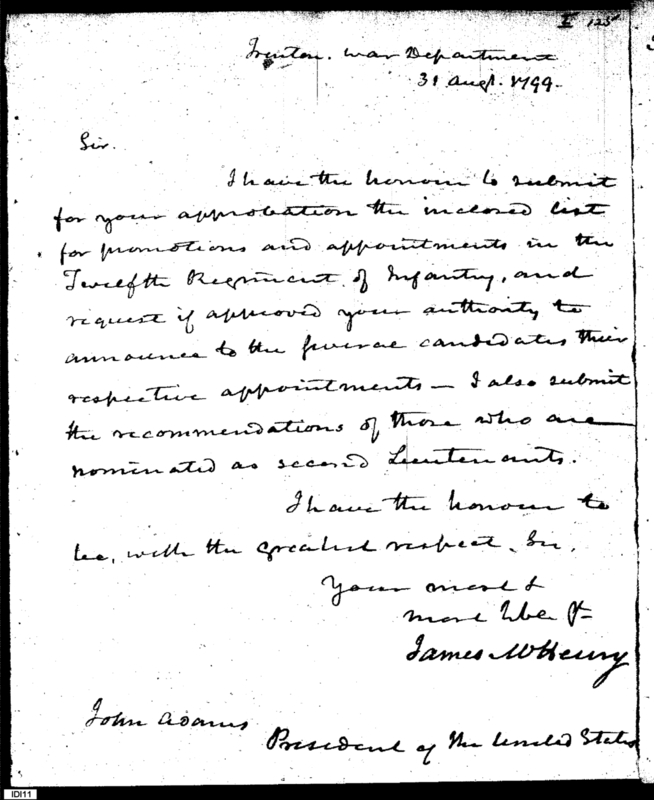 I 125
Trenton. War Department
31 Augt. 1799.
Sir.
I have the honour to submit
for your approbation the inclosed list
for promotions and appointments in the
Twelfth Regiment of Infantry, and
request if approved your authority to
announce to the several candidates their
respective appointments — I also submit
the recommendations of those who are
nominated as second Lieutenants.
I have the honour to
be, with the greatest respect, Sir,
Your most &
most hble St
James McHenry
John Adams
President of the United States
IDI11